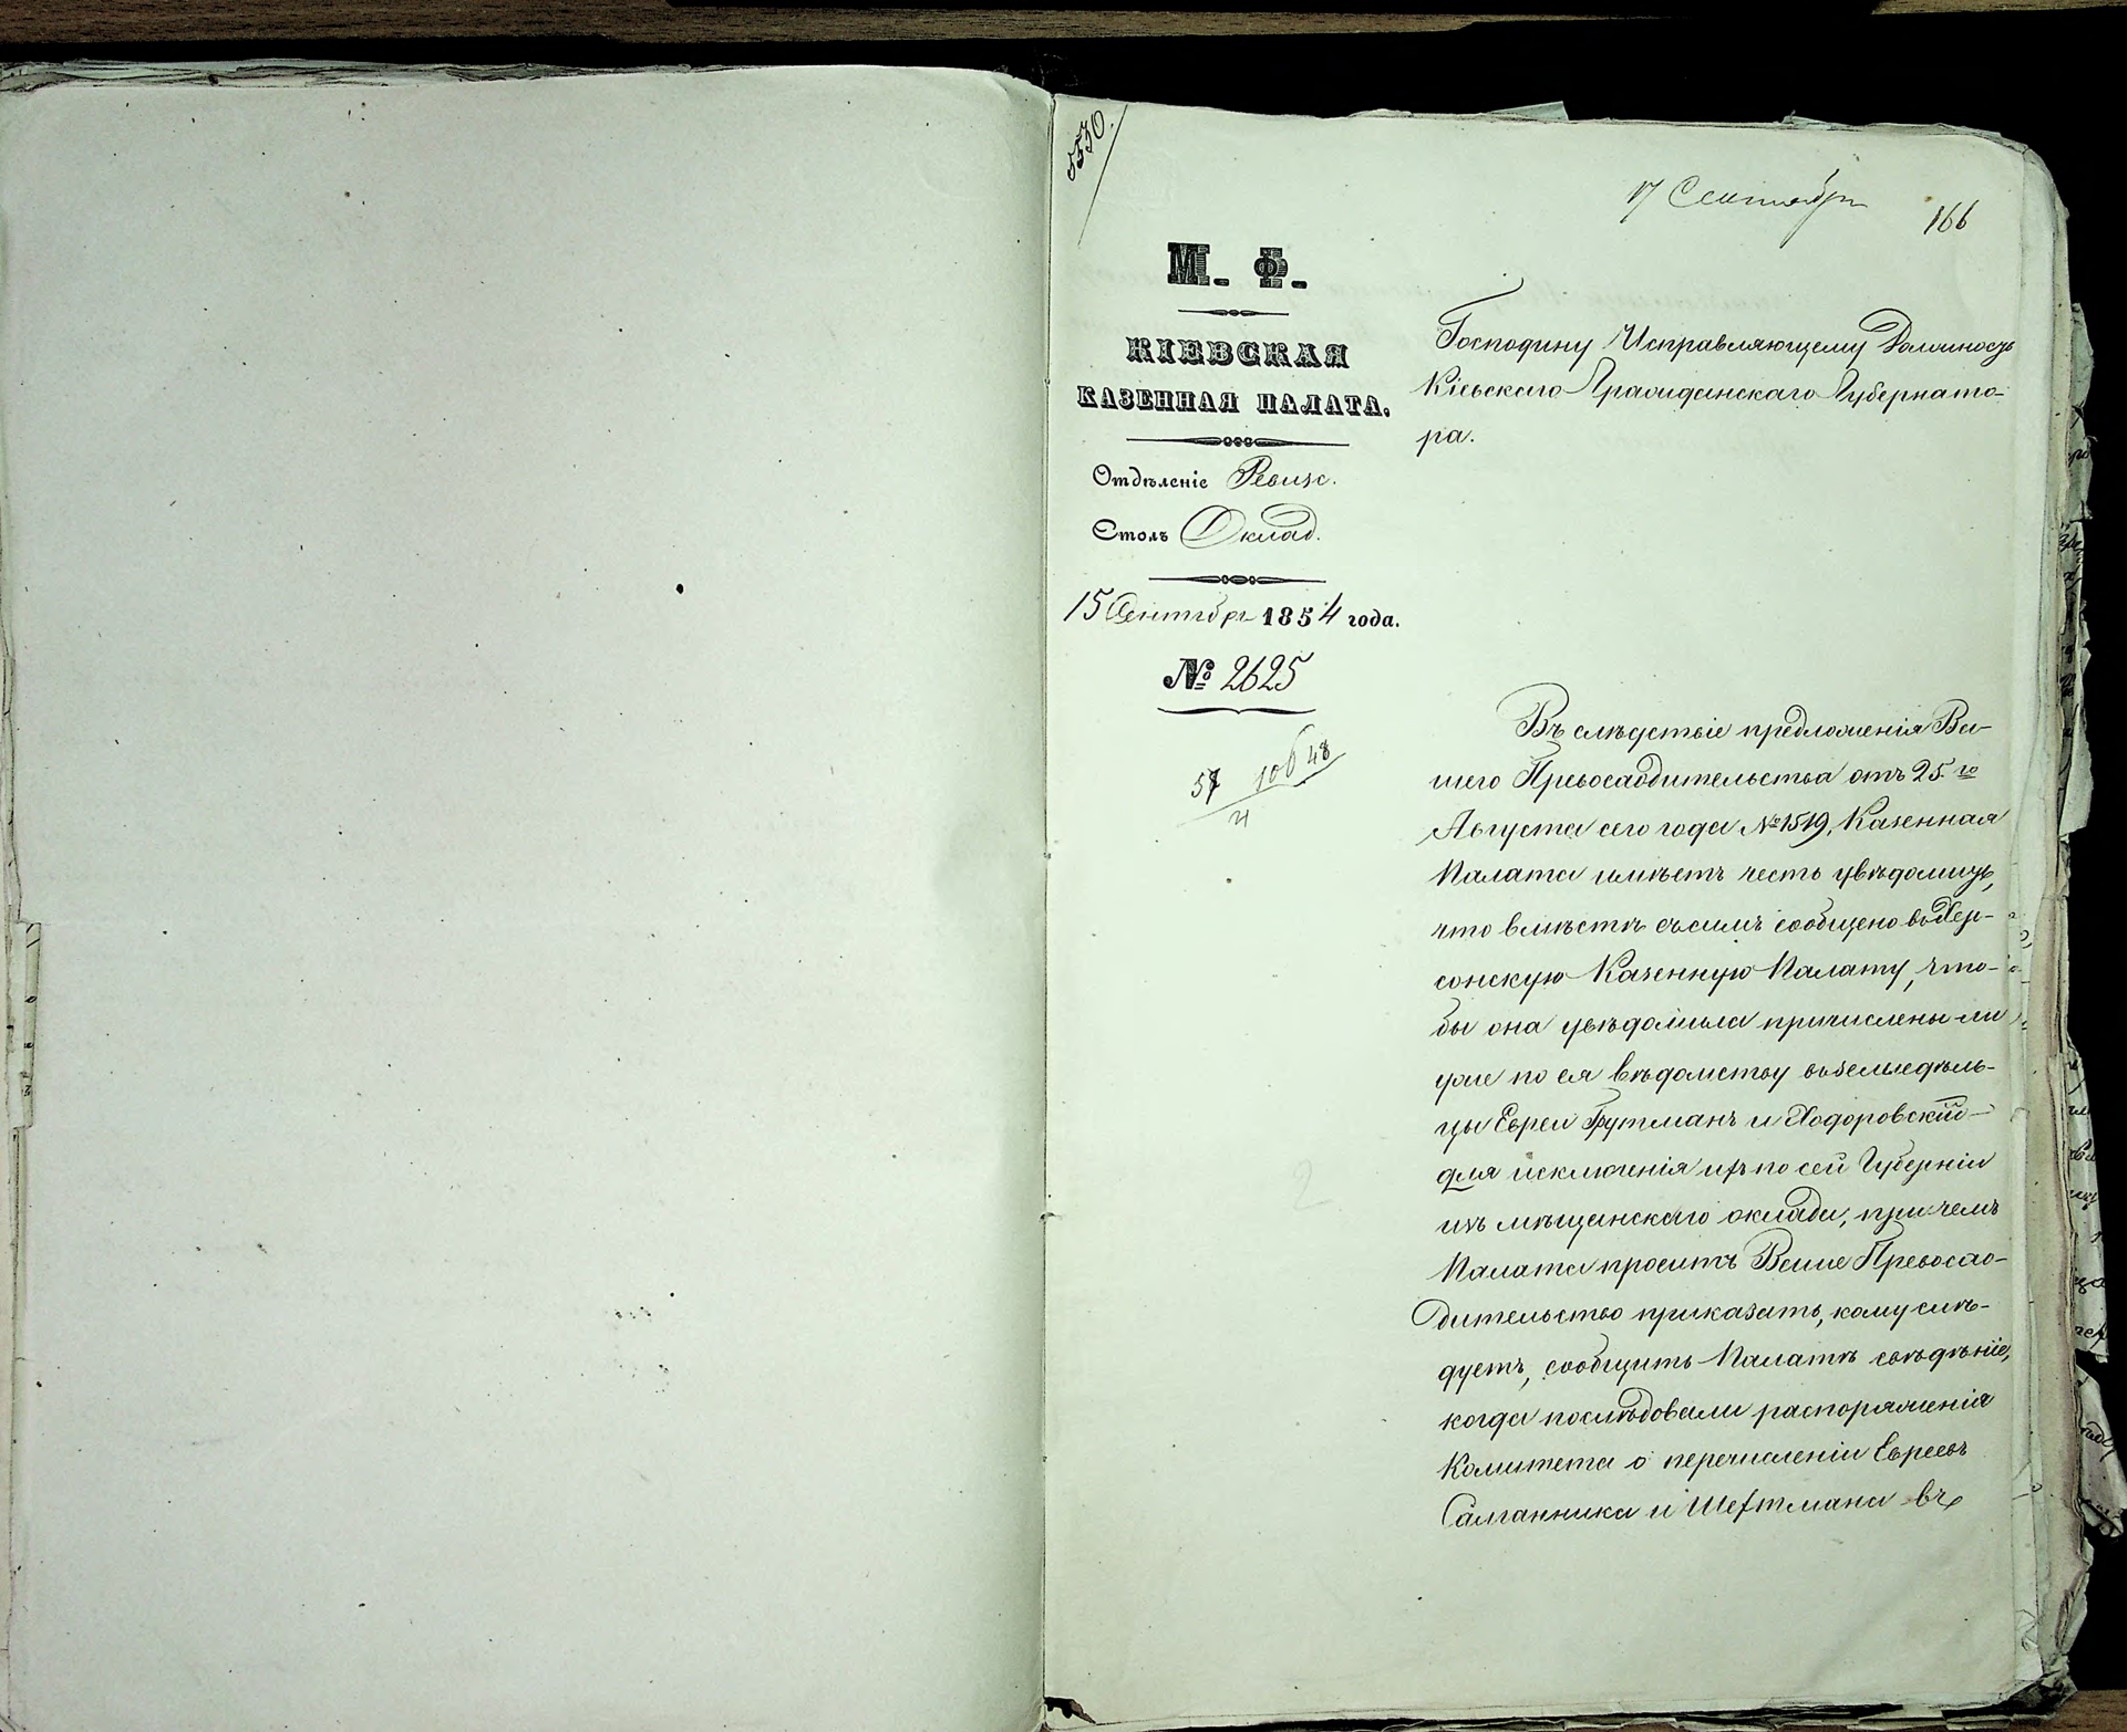 5530.
17 Сентября
166
М. Ф.
КІЕВСКАЯ
КАЗЕННАЯ ПАЛАТА.
Отдѣленіе Ревизс.
Столъ Оклад.
15 Сентября 1854 года.
№ 2625
Господину Исправляющему Должность
Кіевскаго Гражданскаго Губернато-
ра.
Въ слѣдствіе предложенія Ва-
шего Превосходительства отъ 25.го
Августа сего года № 1519, Казенная
Палата имѣетъ честь увѣдомить,
что вмѣстѣ съ симъ сообщено въ Хер-
сонскую Казенную Палату, что-
бы она увѣдомила причислены-ли
уже по ея вѣдомству въ земледѣль-
цы Евреи Трутманъ и Ходоровскій
для исключенія ихъ по сей Губерніи
изъ мѣщанскаго оклада, при чемъ
Палата проситъ Ваше Превосхо-
дительство приказать, кому слѣ-
дуетъ, сообщить Палатѣ свѣдѣніе,
когда послѣдовали распоряженія
Комитета о перечисленіи Евреевъ
Салганника и Шехтмана въ